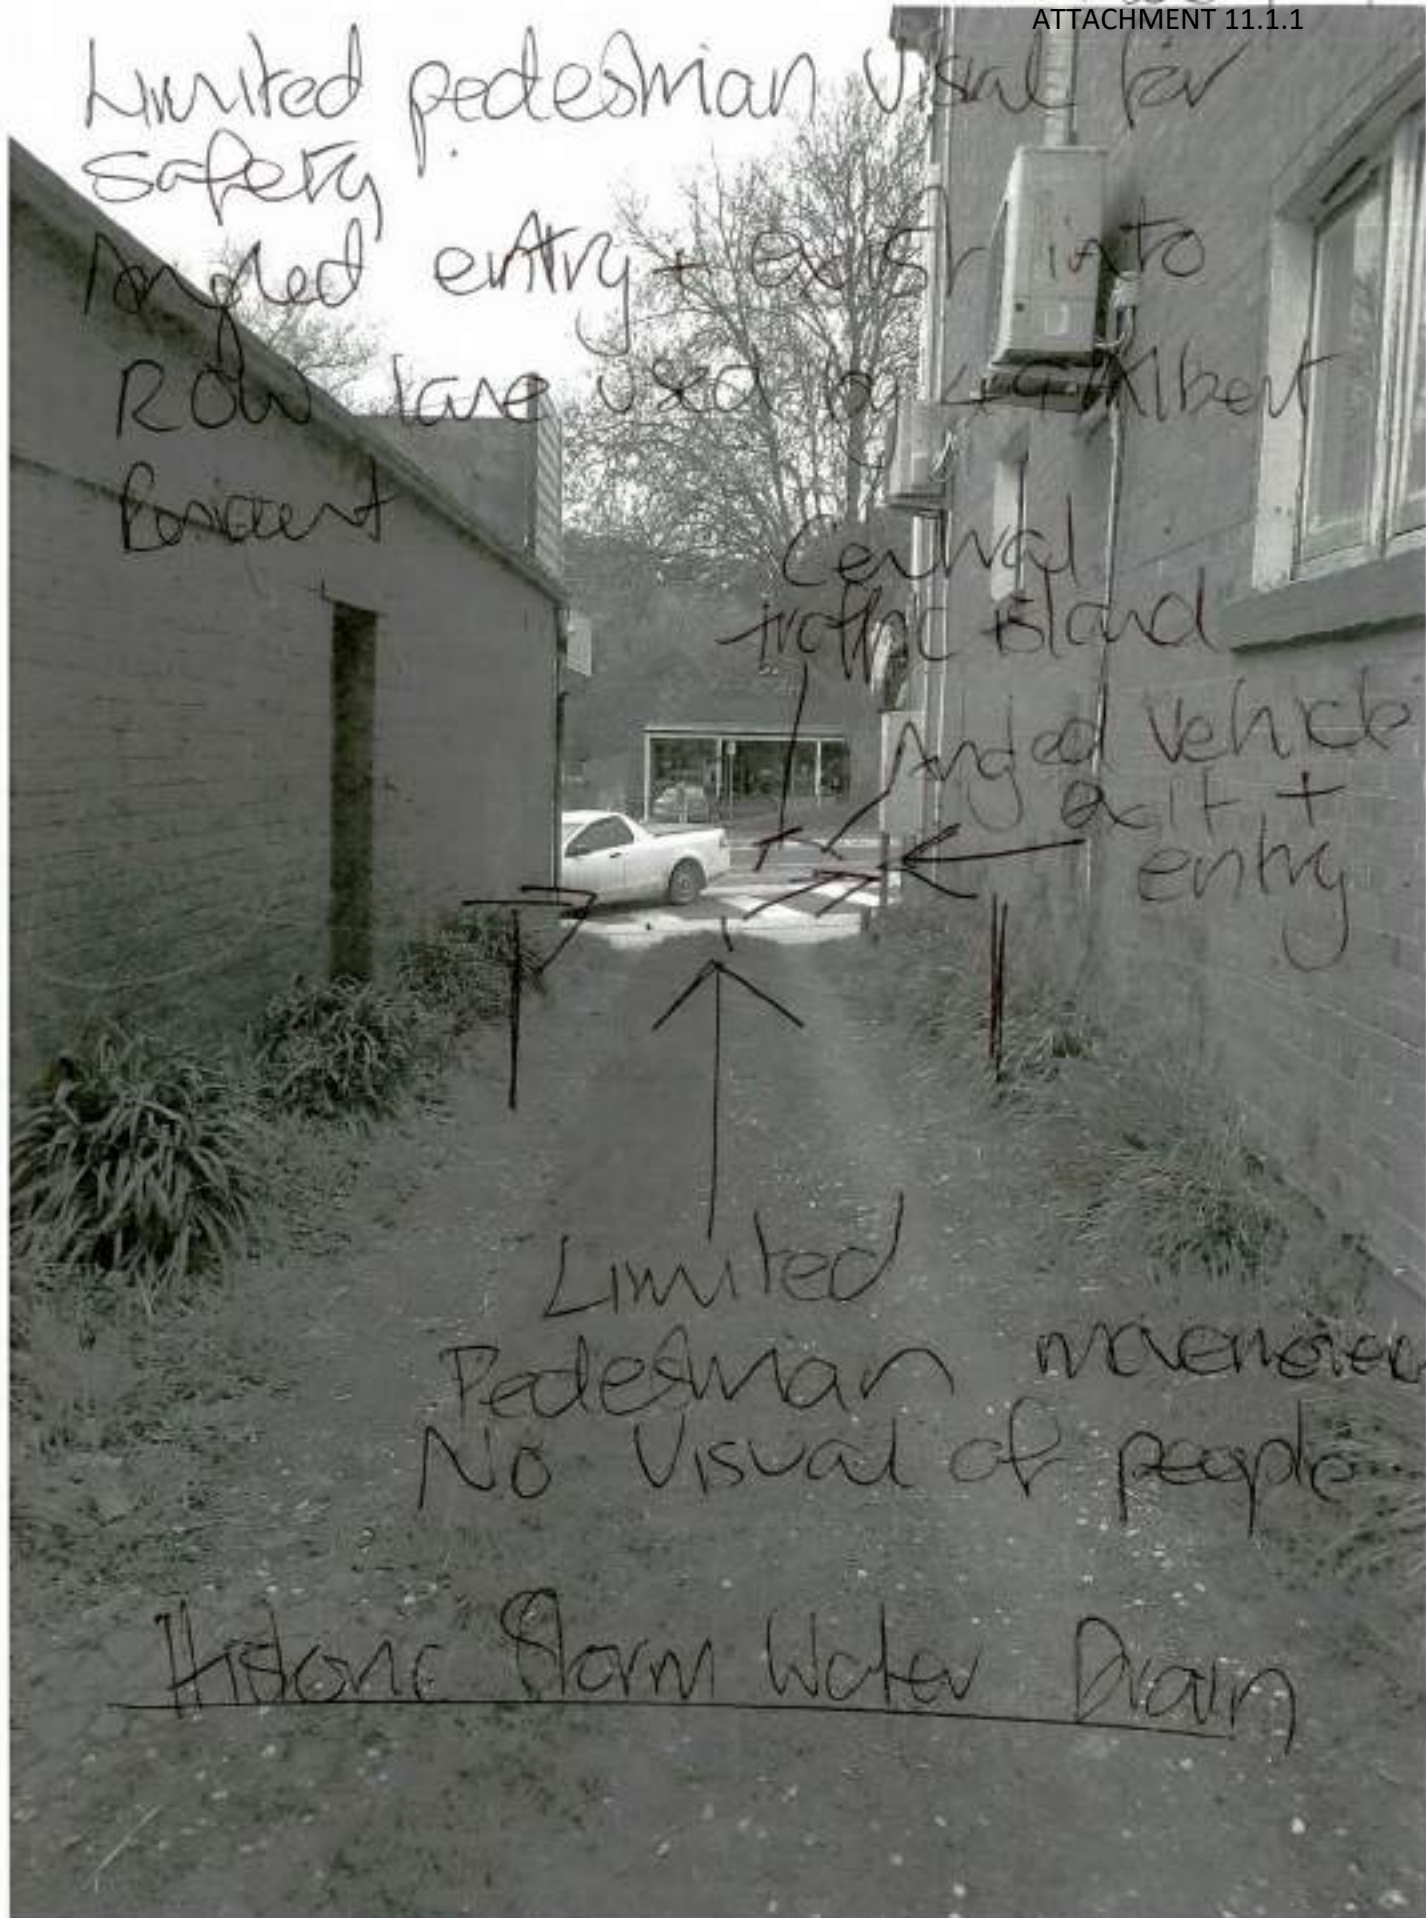 ATTACHMENT 11.1.1
Limited pedestrian visual for
safety
Angled entry + exist into
ROW lane used by Albert
Central
traffic island
Angled Vehicle
exit +
entry
Limited
Pedestrian
No Visual of people
Historic Storm Water Drain